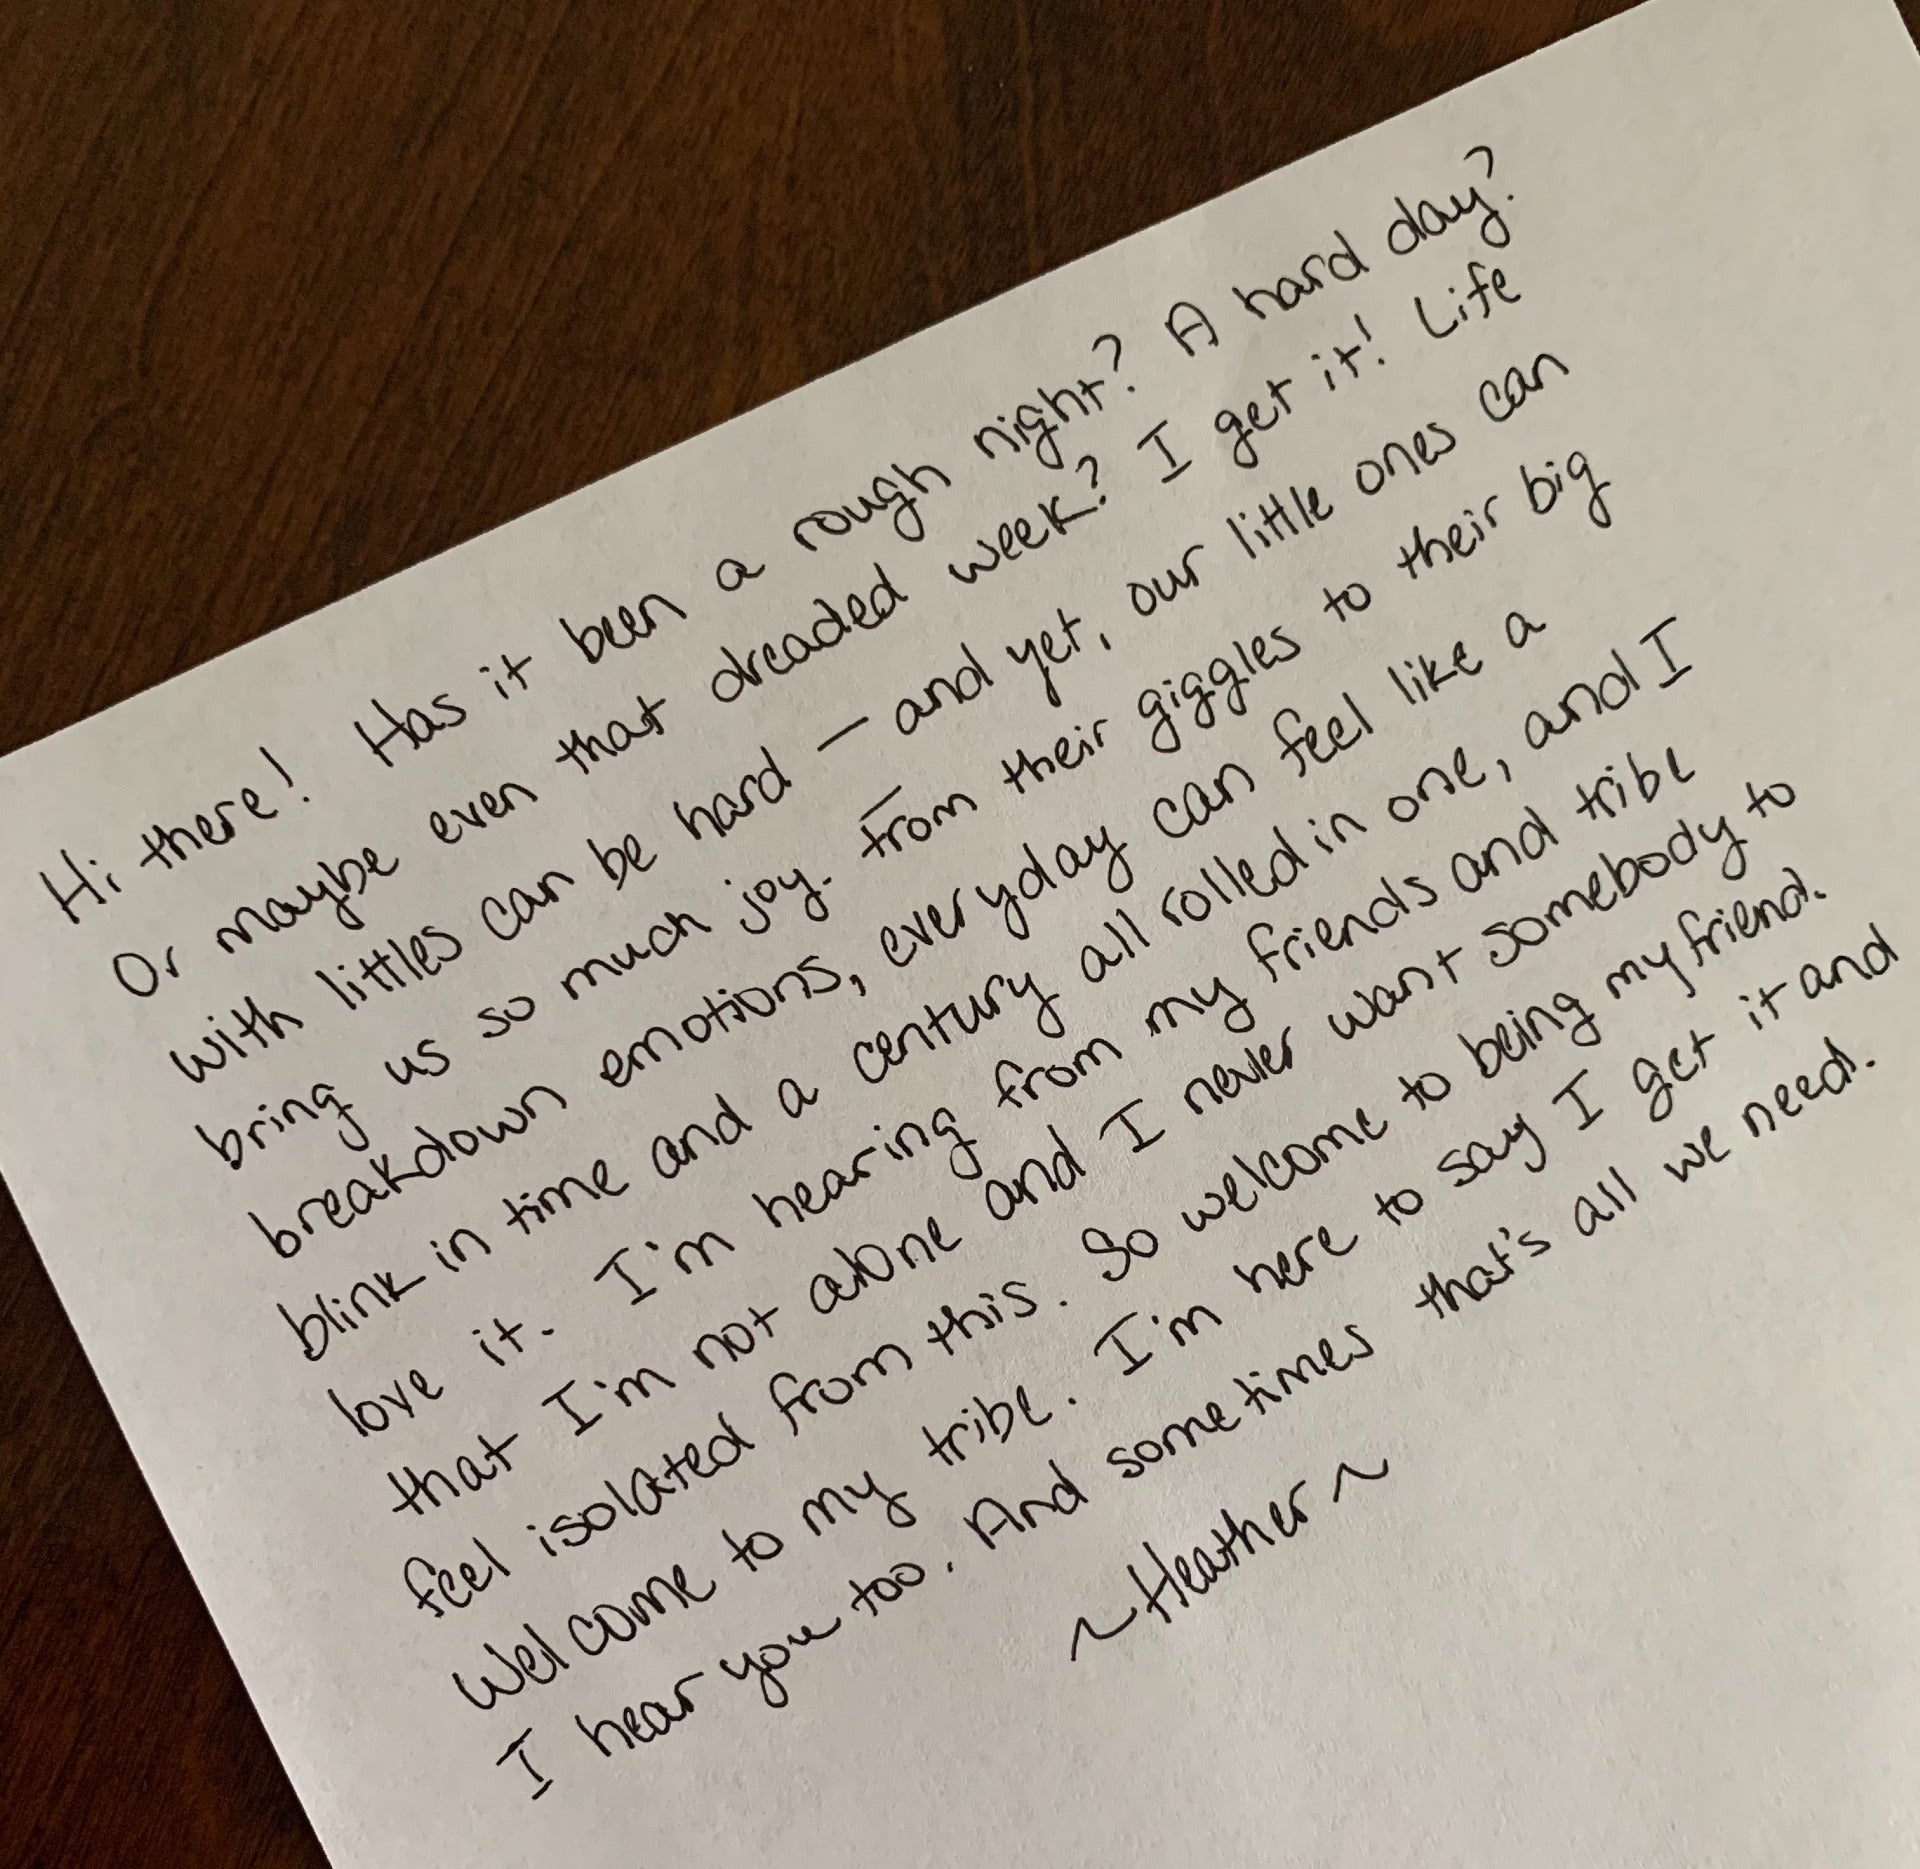 Hi there! Has it been a rough night? A hard day?
Or maybe even that dreaded week? I get it! Life
with littles can be hard – and yet, our little ones can
bring us so much joy. From their giggles to their big
breakdown emotions, everyday can feel like a
blink in time and a century all rolled in one, and I
love it. I'm hearing from my friends and tribe
that I'm not alone and I never want somebody to
feel isolated from this. So welcome to being my friend.
Welcome to my tribe. I'm here to say I get it and
I hear you too. And sometimes that's all we need.
~Heather~